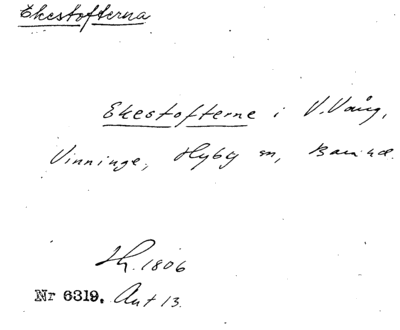 Ekestofterna
Ekestofterne i V. Vång,
Vinninge, Hyby sn, Bara hd.
1806
Nr 6319. Ant 13.